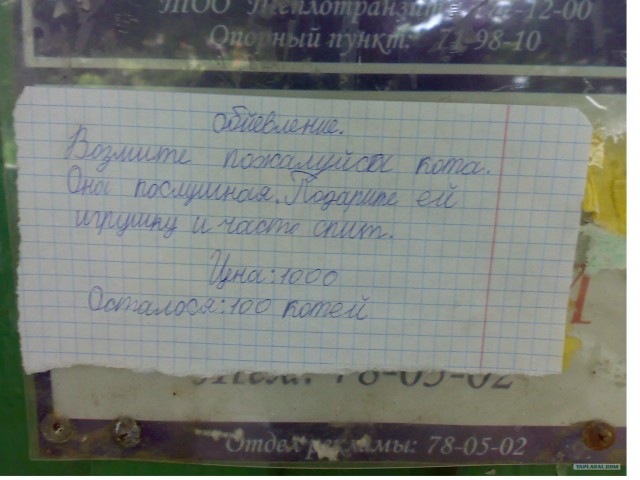 ТОО "Теплотранзит" 12-00
Опорный пункт: 71-98-10
Обиевление.
Возмите пожалуйста кота.
Она послушная. Подарите ей
игрушку и часто спит.
Цена: 1000
Осталося: 100 котей
78-05-02
Отдел рекламы: 78-05-02
YAPLAKAL.COM